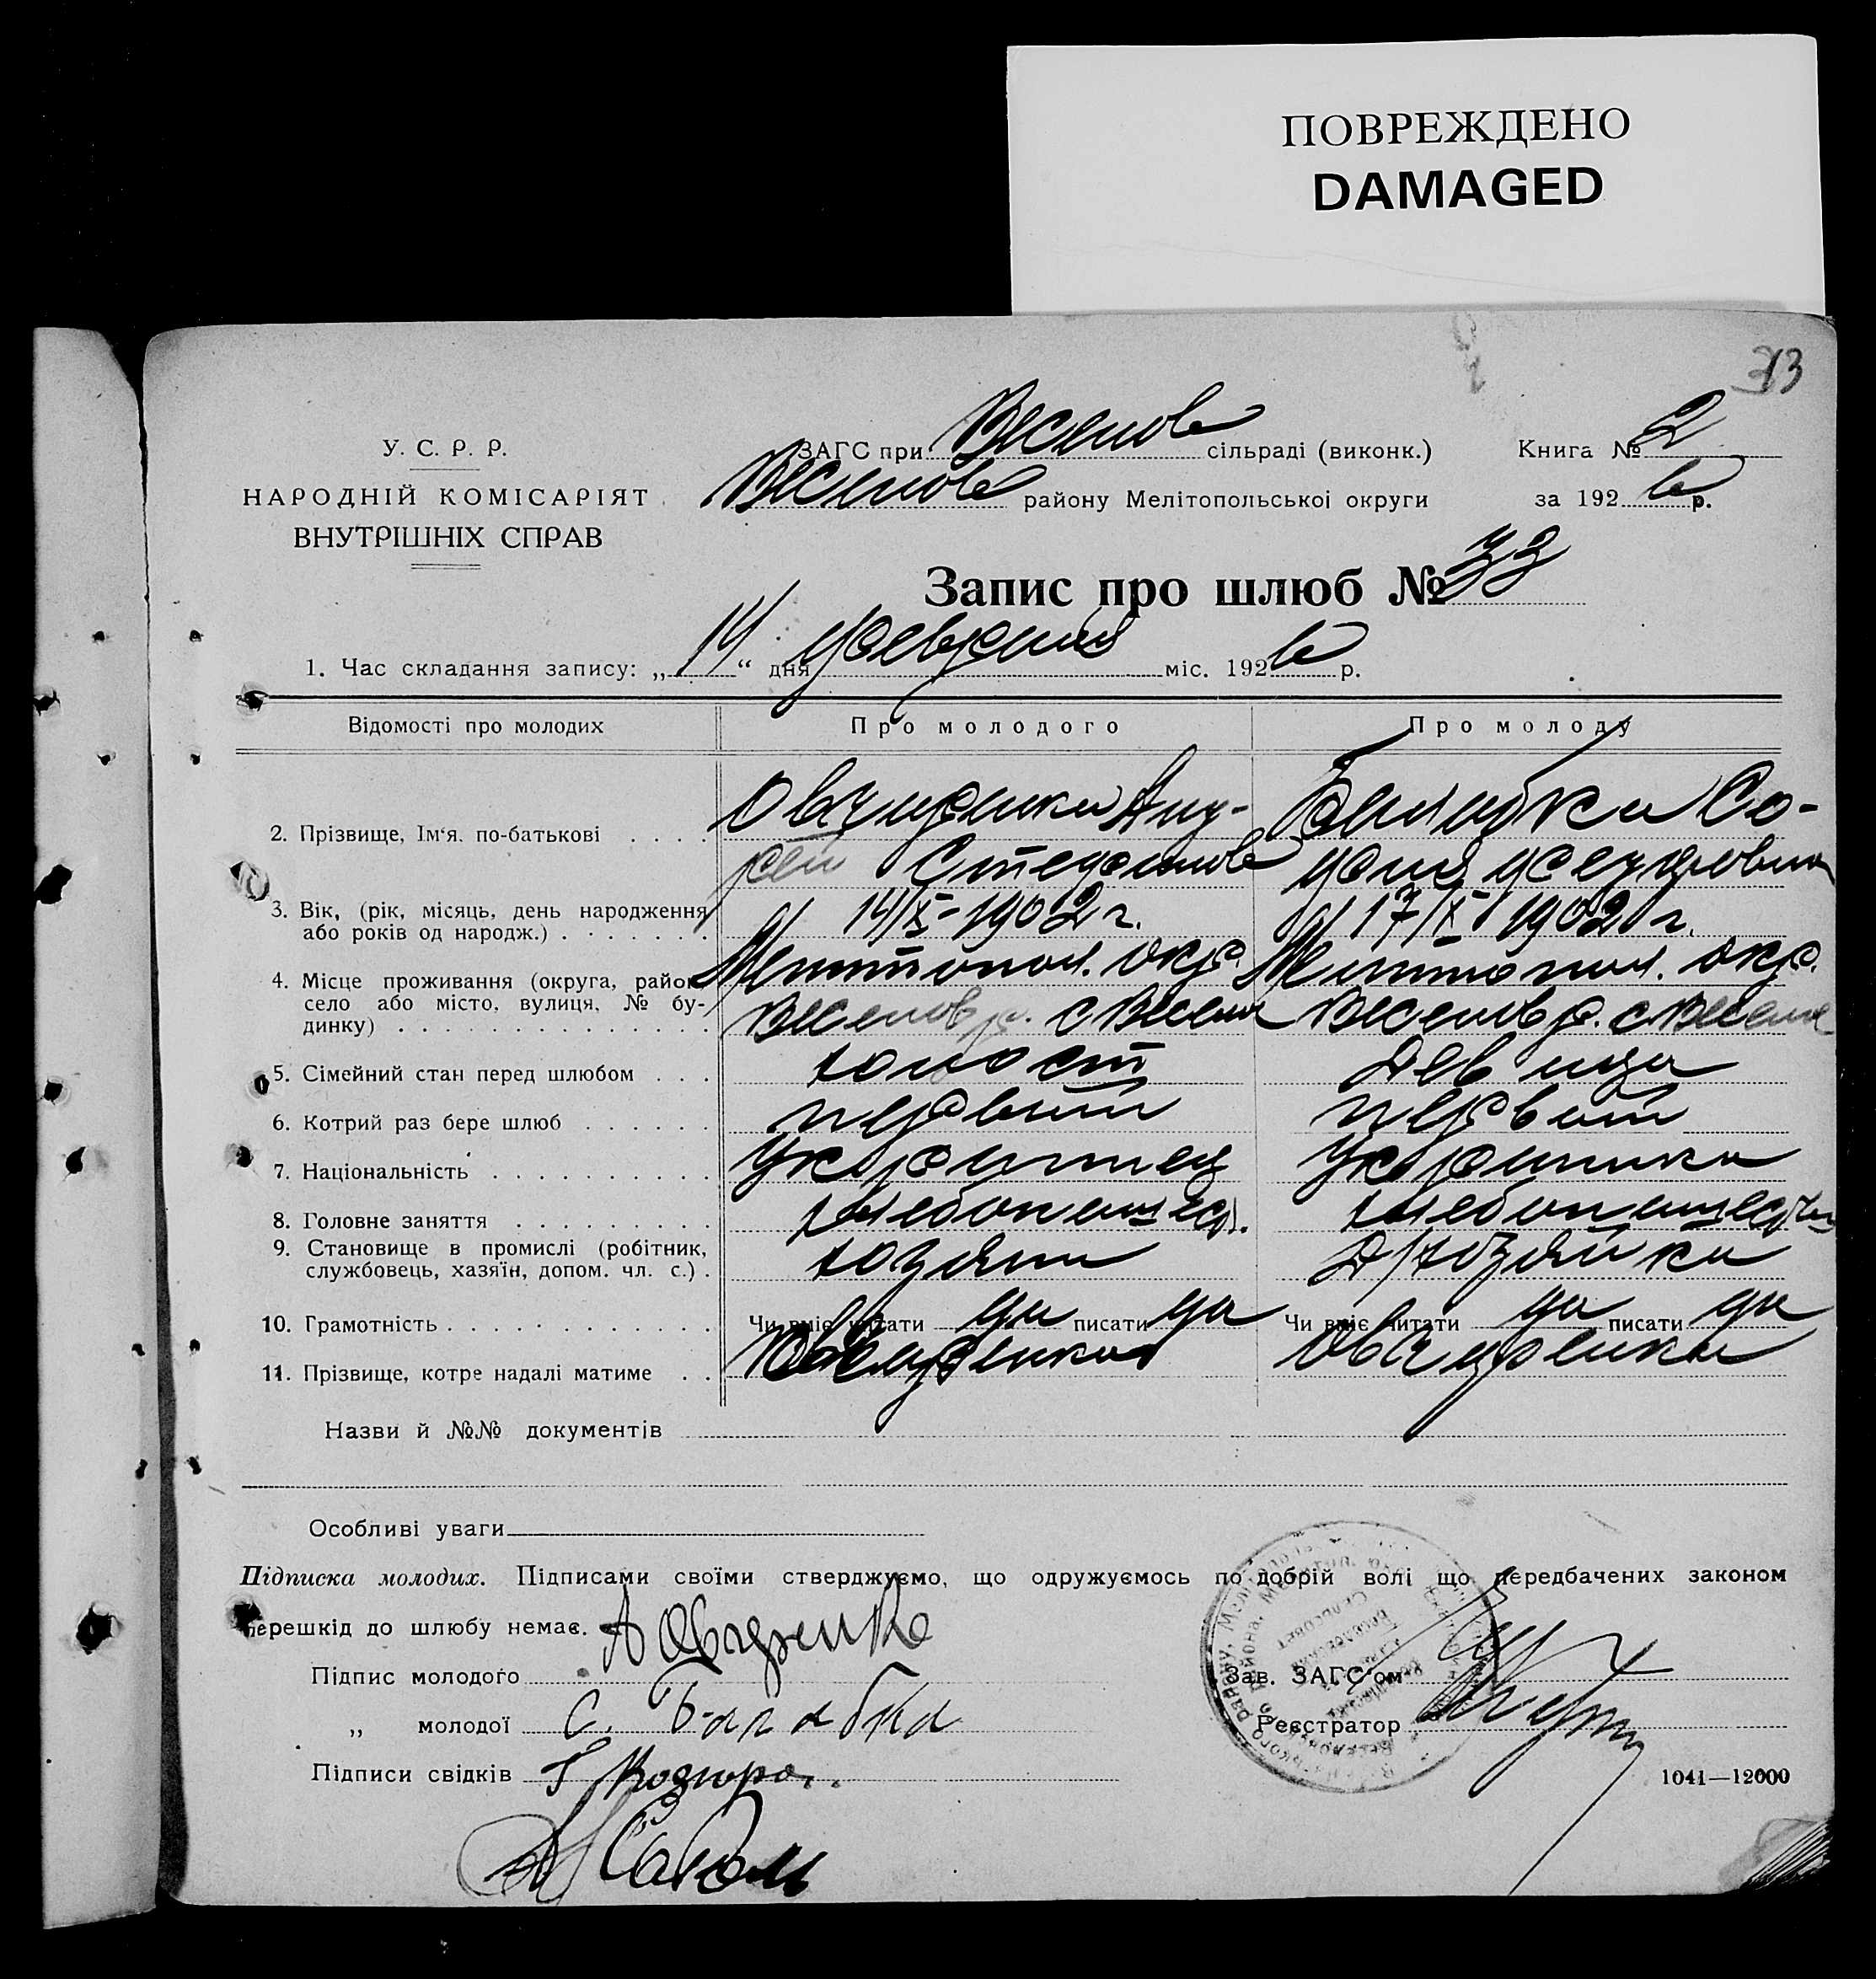 ПОВРЕЖДЕНО
DAMAGED
33
У. С. Р. Р.
НАРОДНІЙ КОМІСАРІЯТ
ВНУТРІШНІХ СПРАВ
ЗАГС при Веселов сільраді (виконк.)
Книга № 2
Веселов району Мелітопольської округи
за 1926 р.
Запис про шлюб № 33
1. Час складання запису: „14“ дня февраля міс. 1926 р.
Відомості про молодих Про молодого Про молоду
2. Прізвище, Ім‘я, по-батькові . . . . Овчаренко Анд- Балабка Со-
рей Степанов фия Федоровна
3. Вік, (рік, місяць, день народження 14/X-1902 г. 17/X 1902 г.
або років од народж.) . . . . . . .
4. Місце проживання (округа, район, Мелитопол. окр. Мелитопол. окр.
село або місто, вулиця, № бу-
динку) . . . . . . . . . . . . . . Веселов р. с Весел Веселов р. с Весел
5. Сімейний стан перед шлюбом . . . холост девица
6. Котрий раз бере шлюб . . . . . . первый первый
7. Національність . . . . . . . . . . украинец украинка
8. Головне заняття . . . . . . . . . хлебопашец хлебопашест
9. Становище в промислі (робітник, хозяин д/хозяйка
службовець, хазяїн, допом. чл. с.) .
10. Грамотність . . . . . . . . . . . . Чи вміє читати да писати да Чи вміє читати да писати да
11. Прізвище, котре надалі матиме . . Овчаренко Овчаренко
Назви й №№ документів
Особливі уваги
Підписка молодих. Підписами своїми стверджуємо, що одружуємось по добрій волі що передбачених законом
перешкід до шлюбу немає.
Підпис молодого А Овчаренко
„ молодої С. Балабка
Зав. ЗАГС‘ом
Реєстратор
Підписи свідків Г Козюра
1041—12000